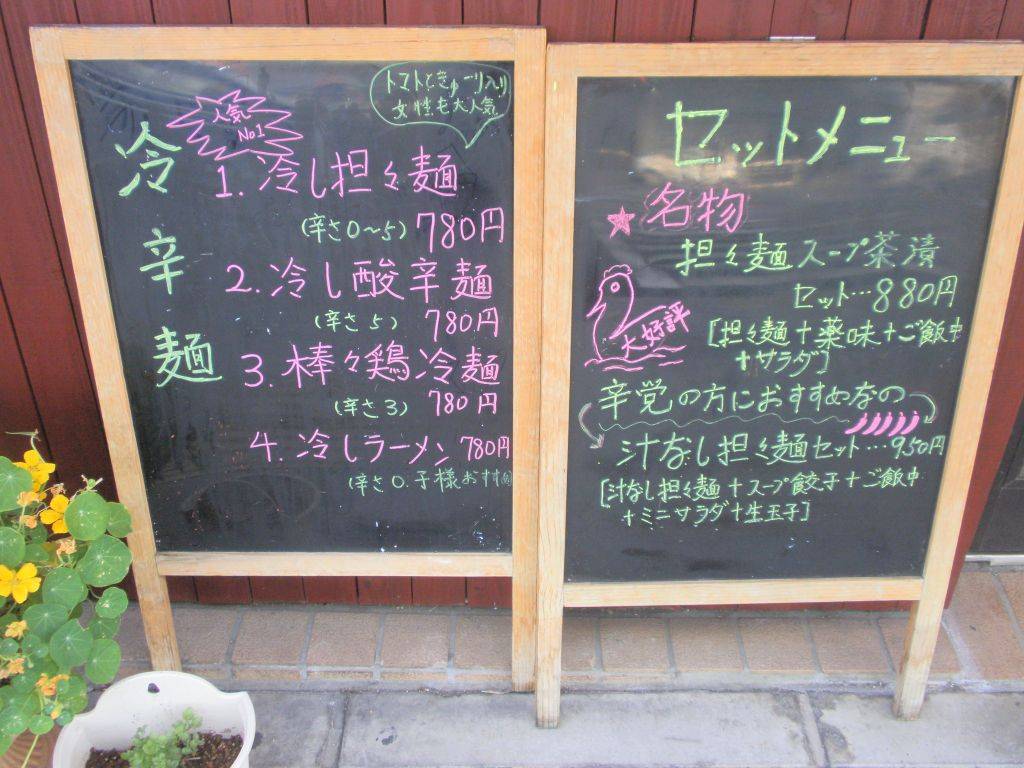 冷辛麺
人気
No1
トマトときゅーり入り
女性も大人気
1. 冷し担々麺
(辛さ0〜5) 780円
2. 冷し酸辛麺
(辛さ5) 780円
3. 棒々鶏冷麺
(辛さ3) 780円
4. 冷しラーメン 780円
(辛さ0. 子様おすすめ
セットメニュー
★名物
担々麺スープ茶漬
セット…880円
大好評
[担々麺+薬味+ご飯中
+サラダ]
辛党の方におすすめなの
汁なし担々麺セット…950円
[汁なし担々麺+スープ餃子+ご飯中
+ミニサラダ+生玉子]